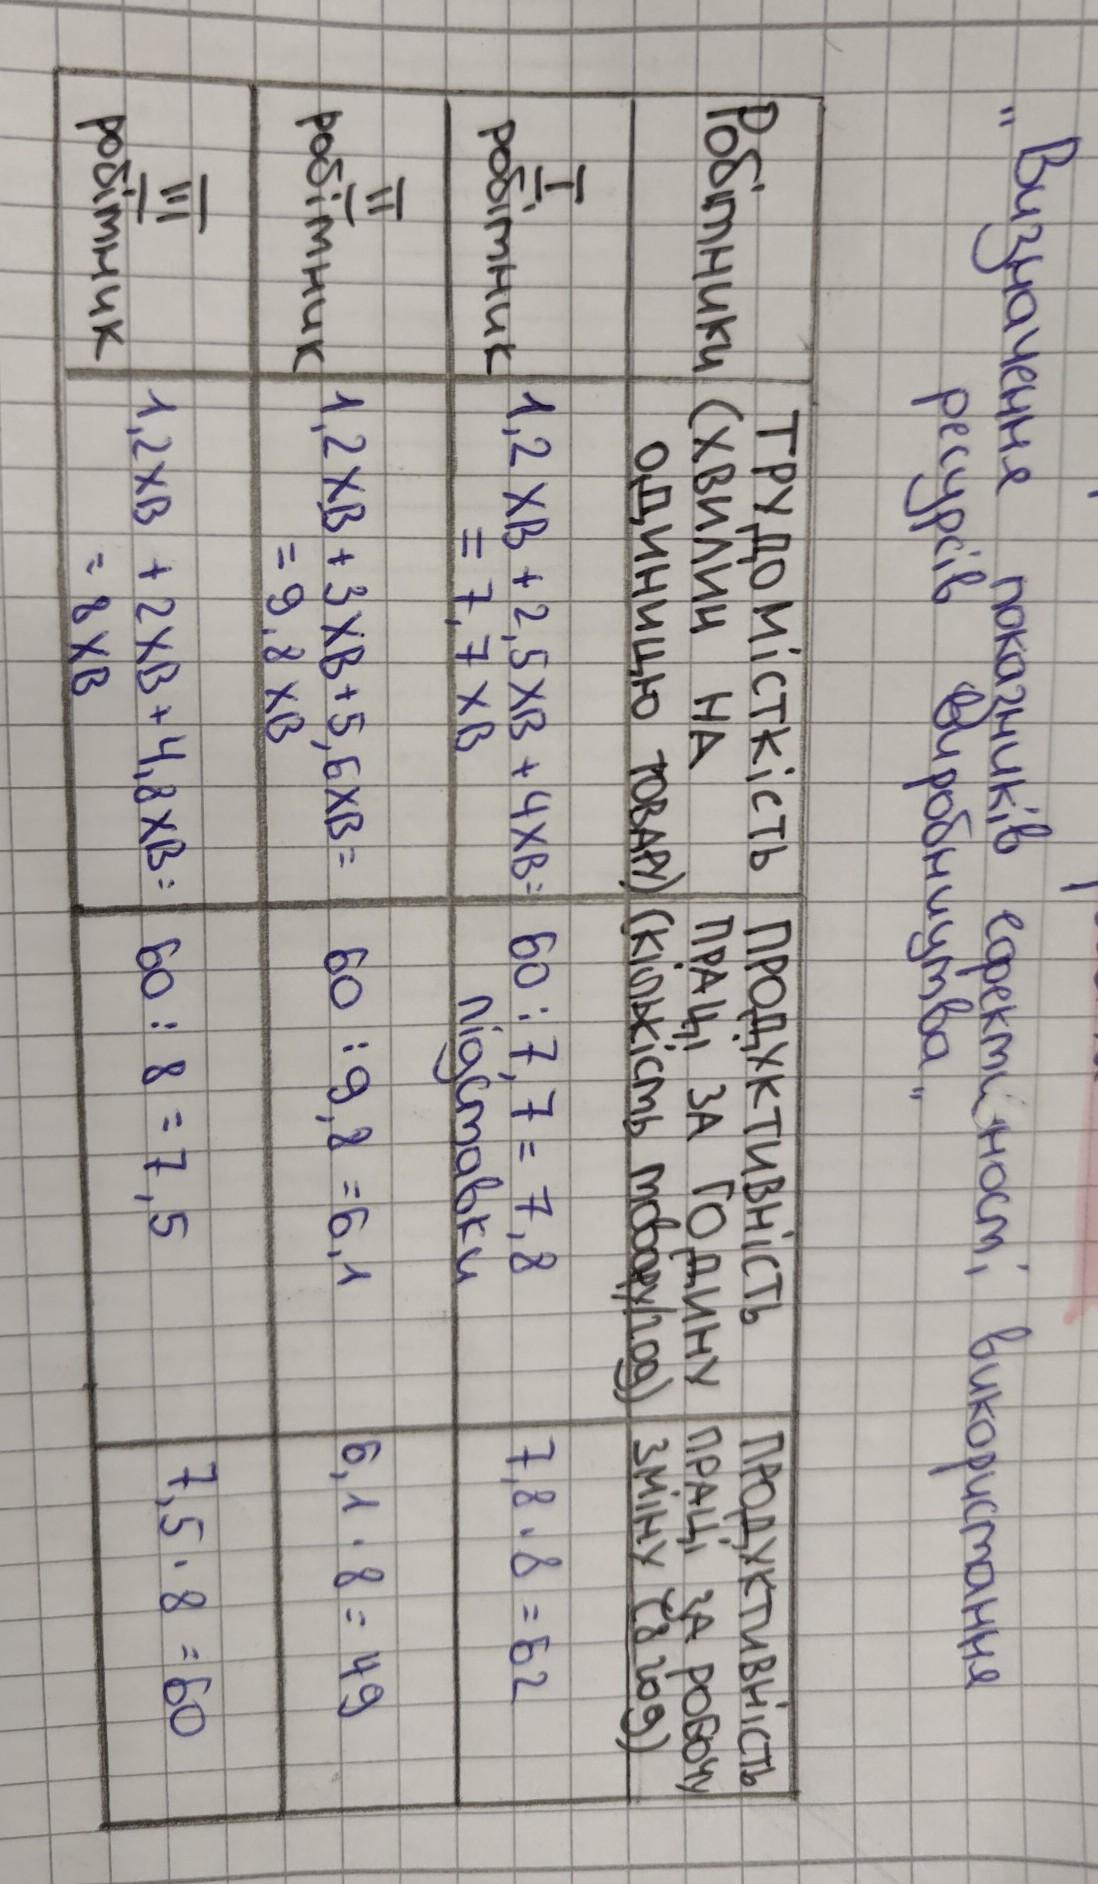 "Визначення показників ефективності, використання
ресурсів виробництва"
Робітники
ТРУДОМІСТКІСТЬ
(ХВИЛИН НА
ОДИНИЦЮ ТОВАРУ)
ПРОДУКТИВНІСТЬ
ПРАЦІ ЗА ГОДИНУ
(кількість товару/год)
ПРОДУКТИВНІСТЬ
ПРАЦІ ЗА РОБОЧУ
ЗМІНУ (8 год)
I
робітник
1,2 хв + 2,5хв + 4хв=
= 7,7 хв
60 : 7,7 = 7,8
підставки
7,8 · 8 = 62
II
робітник
1,2хв + 3хв + 5,6хв=
= 9,8 хв
60 : 9,8 = 6,1
6,1 · 8 = 49
III
робітник
1,2хв + 2хв + 4,8хв=
= 8хв
60 : 8 = 7,5
7,5 · 8 = 60